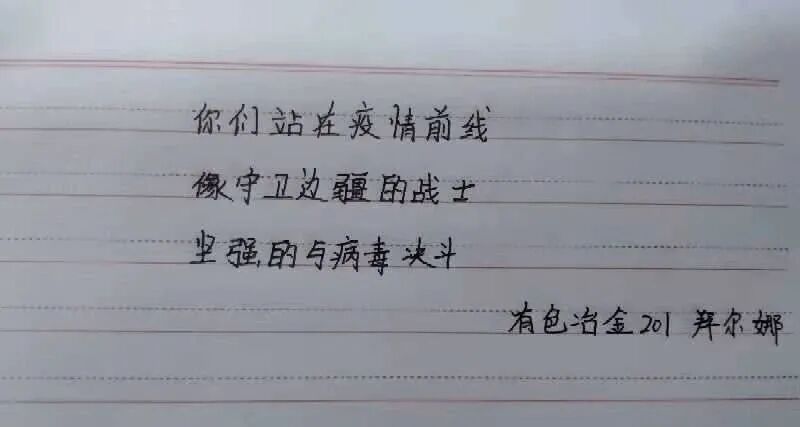 你们站在疫情前线
像守卫边疆的战士
坚强的与病毒决斗
有色冶金201 拜尔娜